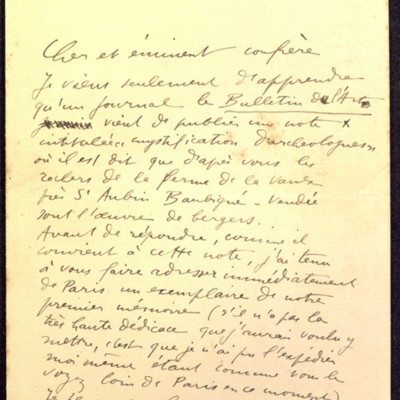 Cher et éminent confrère
Je viens seulement d'apprendre
qu'un journal le Bulletin de l'Art
vient de publier une note x
intitulée « mystification d'archéologues »
où il est dit que d'après vous les
rochers de la ferme de la Vaux
près St Aubin Baubigné - Vendée
sont l'œuvre de bergers.
Avant de répondre, comme il
convient à cette note, j'ai tenu
à vous faire adresser immédiatement
de Paris un exemplaire de notre
premier mémoire (s'il n'a pas la
très haute dédicace que j'aurais voulu y
mettre, c'est que je n'ai pu l'expédier
moi même étant comme vous le
voyez loin de Paris en ce moment)